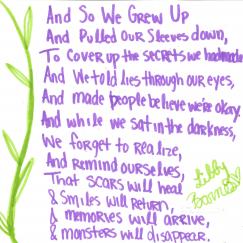 And So We Grew Up
And Pulled Our Sleeves down,
To Cover up the secrets we had made
And We told lies through our eyes,
And made people believe we're okay.
And while we sat in the darkness,
We forget to realize,
And Remind ourselves,
That scars will heal
& Smiles will return,
& memories will arrive,
& monsters will disappear.
Libby
Barnes